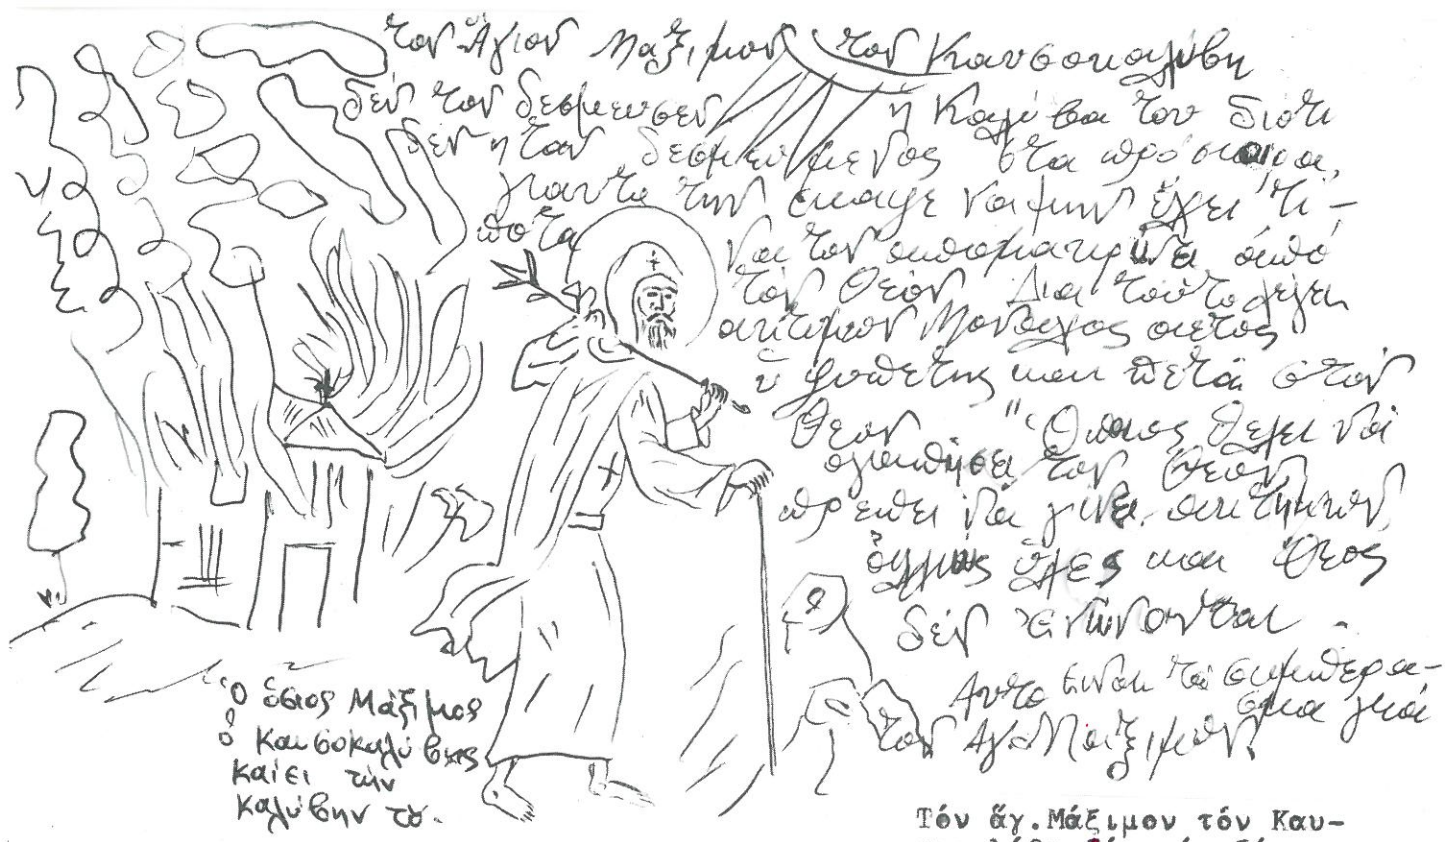 τον Ἅγιον Μαξιμον τον Καυσοκαλύβη
δέν τον δεσμευσεν η Καλύβα του διοτι
δεν ηταν δεσμευμενος στα πρόσκαιρα,
γιαυτο την εκαψε να μην ἔχει τί-
ποτα να τον απομακρύνει ἀπό
τὸν Θεόν. Δια τοῦτο λέγει
Μοναχος αετος
ὑψιπετης και πετᾶ στόν
Θεον "Οποιος θελει νά
τον Θεον
πρεπει νά γίνει
ὕλες και Θεος
δέν ἑνώνονται.
Αυτο ειναι τὸ συμπερα-
σμα γιά
τον Αγ. Μαξιμον.
Ὁ ὅσιος Μάξιμος
ὁ Καυσοκαλύβης
καίει τὴν
καλύβην του.
Τόν ἅγ.Μάξιμον τόν Καυ-